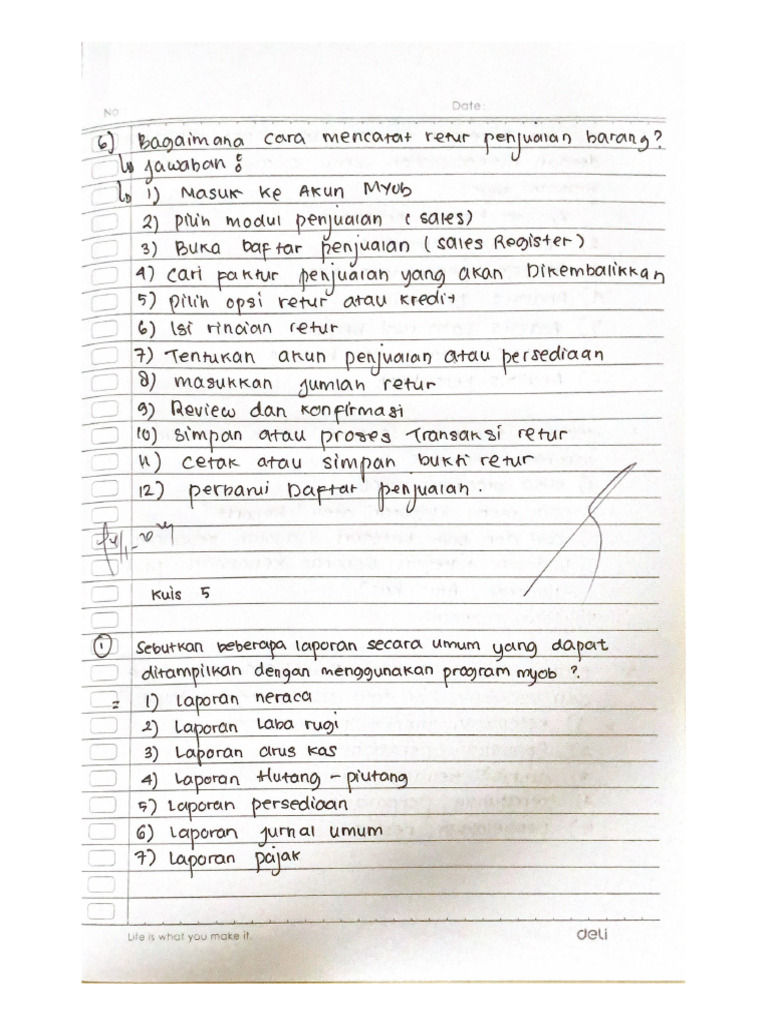 No
Date:
6) Bagaimana cara mencatat retur penjualan barang?
↳ Jawaban :
↳ 1) Masuk ke Akun Myob
2) Pilih modul penjualan (sales)
3) Buka Daftar penjualan (Sales Register)
4) Cari faktur penjualan yang akan Dikembalikkan
5) Pilih opsi retur atau kredit
6) Isi rincian retur
7) Tentukan akun penjualan atau persediaan
8) masukkan jumlah retur
9) Review dan konfirmasi
10) Simpan atau proses Transaksi retur
11) Cetak atau simpan bukti retur
12) perbarui Daftar penjualan.
Kuis 5
1 Sebutkan beberapa laporan secara umum yang dapat
ditampilkan dengan menggunakan program myob ?.
= 1) Laporan neraca
2) Laporan Laba rugi
3) Laporan arus kas
4) Laporan Hutang - piutang
5) Laporan persediaan
6) Laporan jurnal umum
7) Laporan pajak
Life is what you make it.
deli